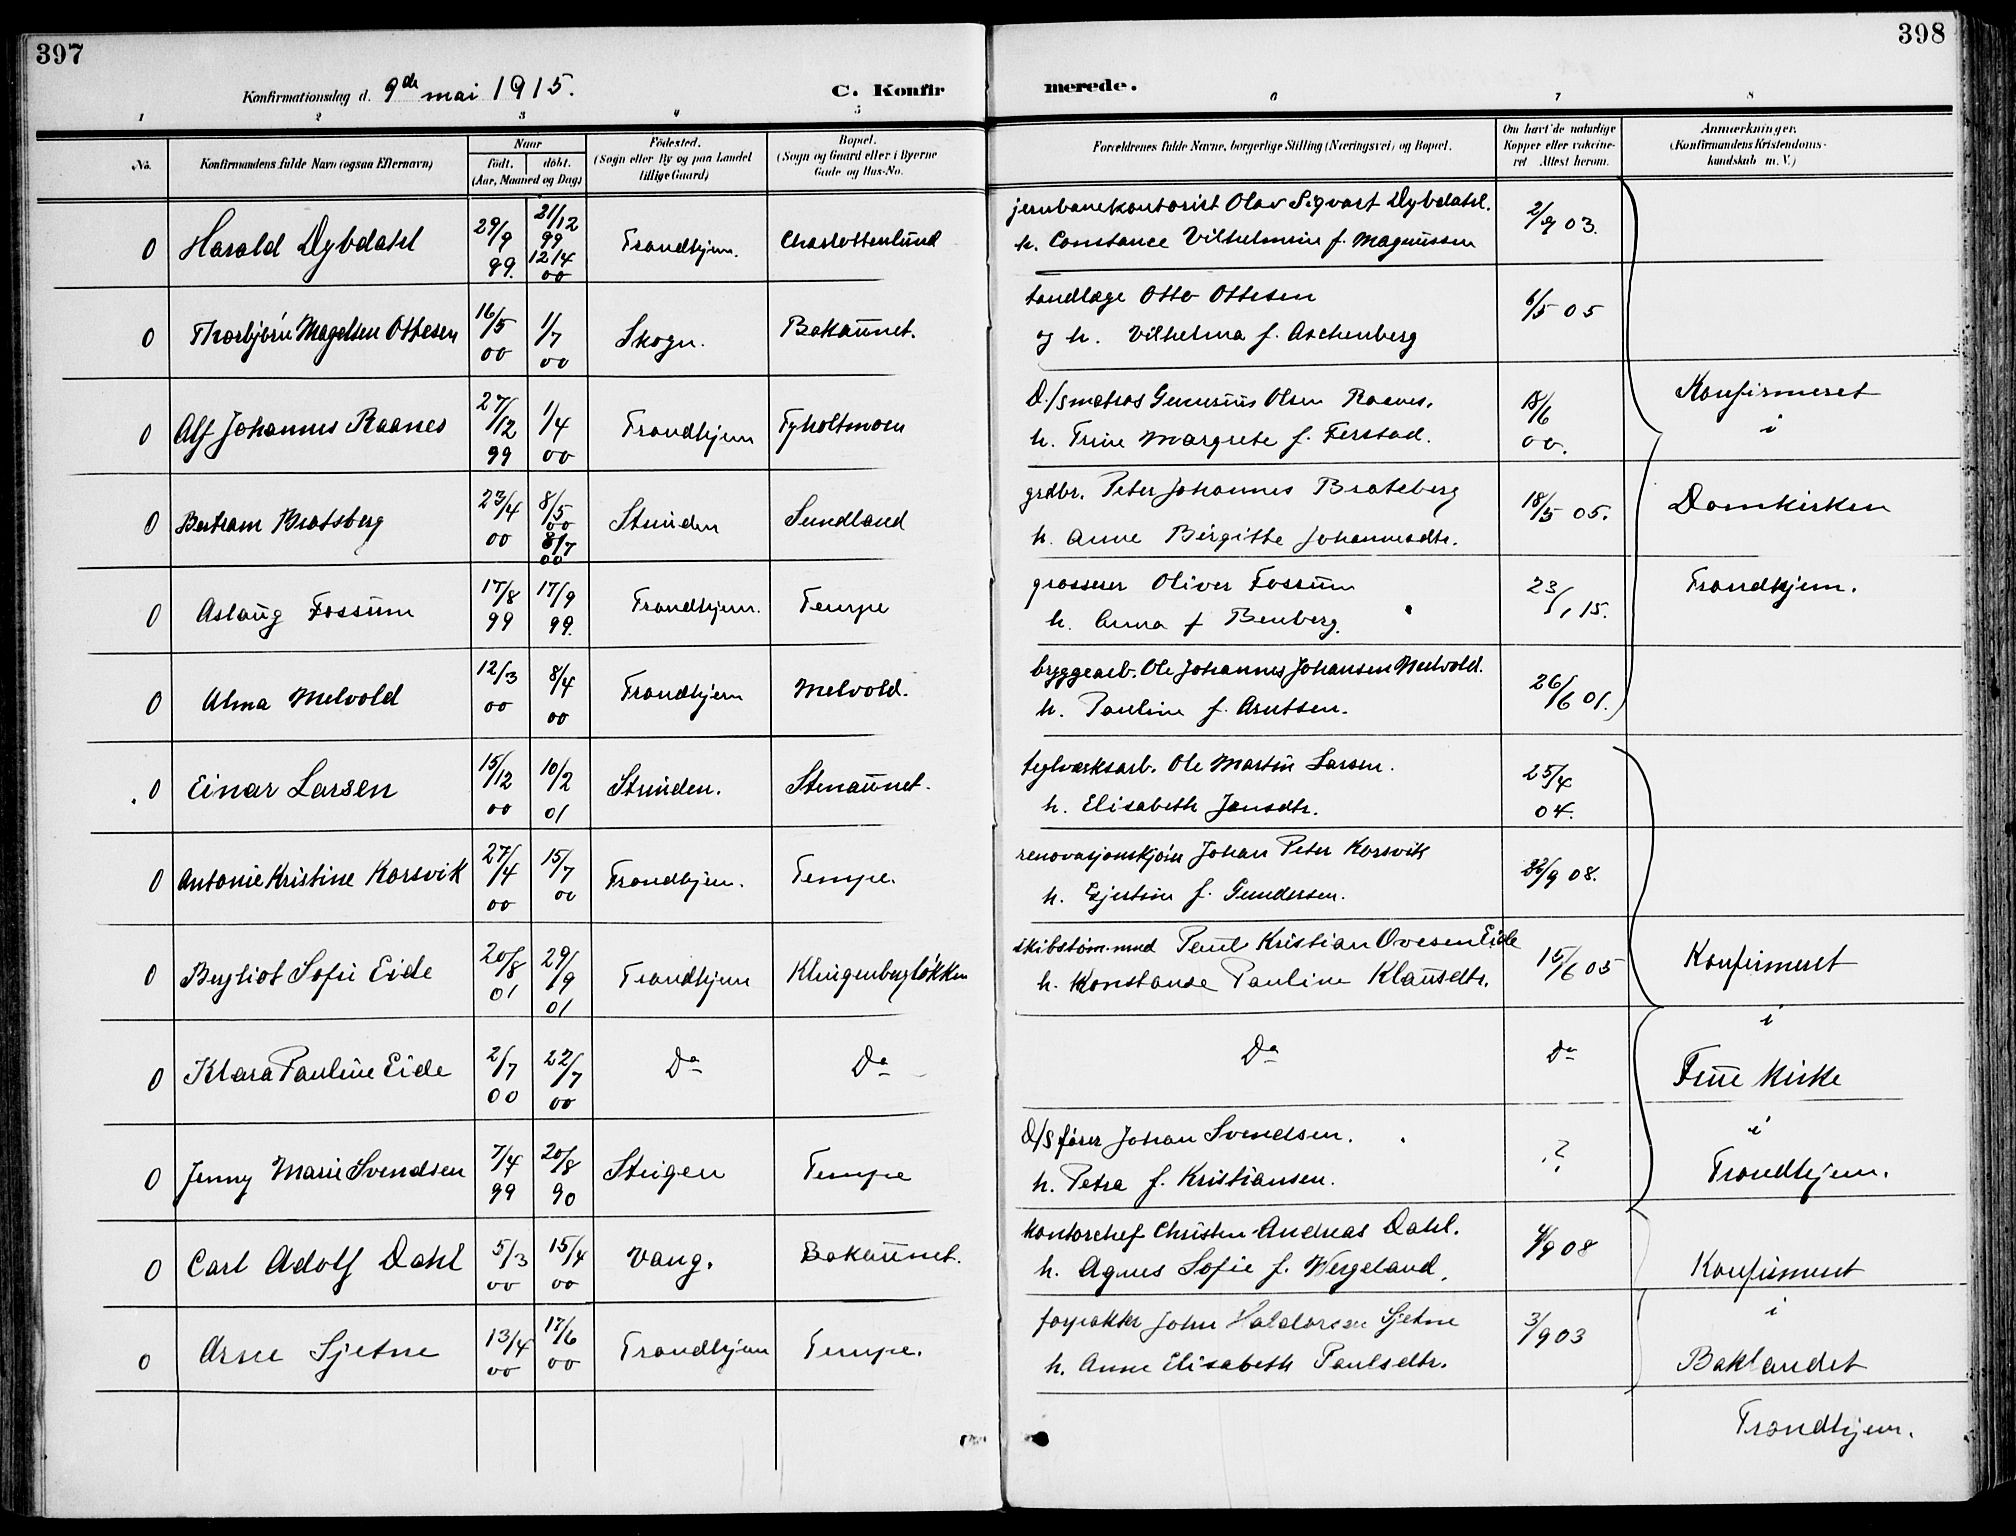 397
398
Konfirmationsdag d. 9de mai 1915.
C. Konfir
merede.
1 2 3 4 5 6 7 8
No.
Konfirmandens fulde Navn (ogsaa Efternavn)
Naar
født. døbt.
(Aar, Maaned og Dag)
Fødested.
(Sogn eller By og paa Landet
tillige Gaard)
Bopæl.
(Sogn og Gaard eller i Byerne
Gade og Hus-No.
Forældrenes fulde Navne, borgerlige Stilling (Næringsvei) og Bopæl.
Om havt de naturlige
Kopper eller vakcine-
ret Attest herom.
Anmærkninger.
(Konfirmandens Kristendoms-
kundskab m. V.)
0 Harald Dybdahl 29/9 99. 21/12 99 12/4 00 Trondhjem. Charlottenlund
jernbanekontorist Olav Sigvart Dybdahl. 2/9 03.
h. Constance Vilhelmine f. Magnussen
0 Thorbjørn Magelsen Ottesen 16/5 00 1/7 00 Skogn. Bakaunet.
tandlæge Otto Ottesen 6/5 05
og h. Vilhelma f. Aschenberg
0 Alf Johannes Raanes 27/12 99 1/4 00 Trondhjem Tyholtmoen
D./S matros Gunerius Olsen Raanes. 18/6 00.
h. Trine Margrete f. Ferstad.
Konfirmeret
i
0 Bertram Bratsberg 23/4 00 8/5 00 8/7 00 Strinden Sundland
grdbr. Peter Johannes Bratsberg 18/5 05.
h. Anne Birgitte Johannesdtr.
Domkirken
0 Aslaug Fossum 17/8 99 17/9 99. Trondhjem. Tempe
grosserer Oliver Fossum 23/1 15.
h. Anna f Benberg.
Trondhjem.
0 Alma Melvold 12/3 00 8/4 00 Trondhjem Melvold.
bryggearb. Ole Johannes Johansen Melvold. 26/6 01.
h. Pauline f. Arntsen.
0 Einar Larsen 15/12 00 10/2 01 Strinden. Stenaunet.
teglværksarb. Ole Martin Larsen. 25/4 04.
h. Elisabeth Jensdtr.
0 Antonie Kristine Korsvik 27/4 00 15/7 00 Trondhjem. Tempe.
renovasjonskjører Johan Peter Korsvik 22/9 08.
h. Gjertine f. Gundersen.
0 Bergliot Sofie Eide 20/8 01 29/9 01 Trondhjem Klingenbergløkken
skibstøm.mnd Paul Kristian Ovesen Eide 15/6 05
h. Konstanse Pauline Klausdtr.
Konfirmeret
i
0 Klara Pauline Eide 2/7 00 22/7 00 Do Do
Do Do
Frue kirke
i
0 Jenny Marie Svendsen 7/4 99 20/8 90 Steigen Tempe
D/S fører Johan Svendsen. ?
h. Petra f. Kristiansen.
Trondhjem.
0 Carl Adolf Dahl 5/3 00 15/4 00 Vang. Bakaunet.
kontorchef Christen Andreas Dahl. 4/9 08
h. Agnes Sofie f. Wergeland.
Konfirmeret
i
0 Arne Sjetne 13/4 00 17/6 00 Trondhjem Tempe.
forpakter John Haldorsen Sjetne 3/9 03
h. Anne Elisabeth Paulsdtr.
Baklandet
Trondhjem.